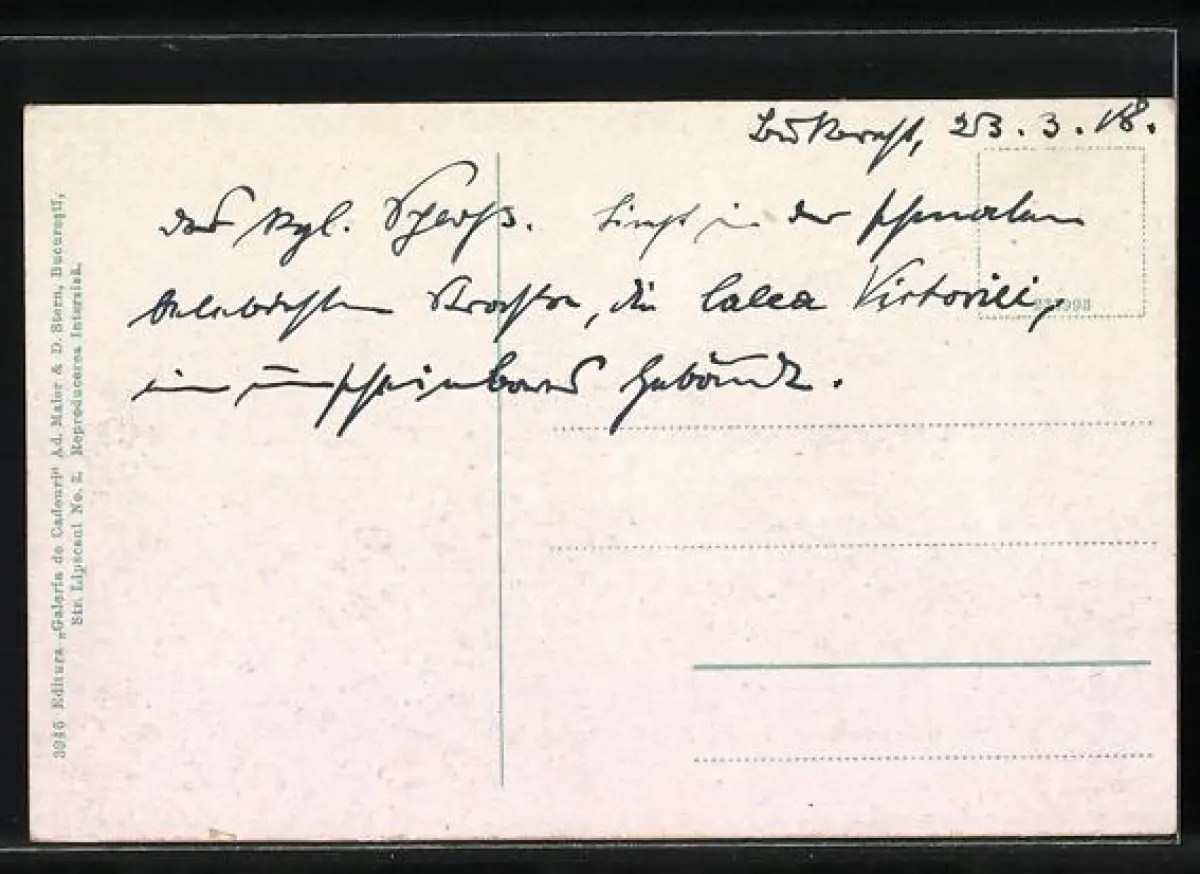 Bukarest, 23.3.18.
Das Kgl. Schloß. Liegt in der schmalen
belebtesten Strasse, die Calea Victoriei,
ein unscheinbares Gebäude.
3945 Editura „Galeria de Cadouri“ Ad. Maier & D. Stern, Bucureşti,
Str. Lipscani No. 2. Reproducerea interzisă.